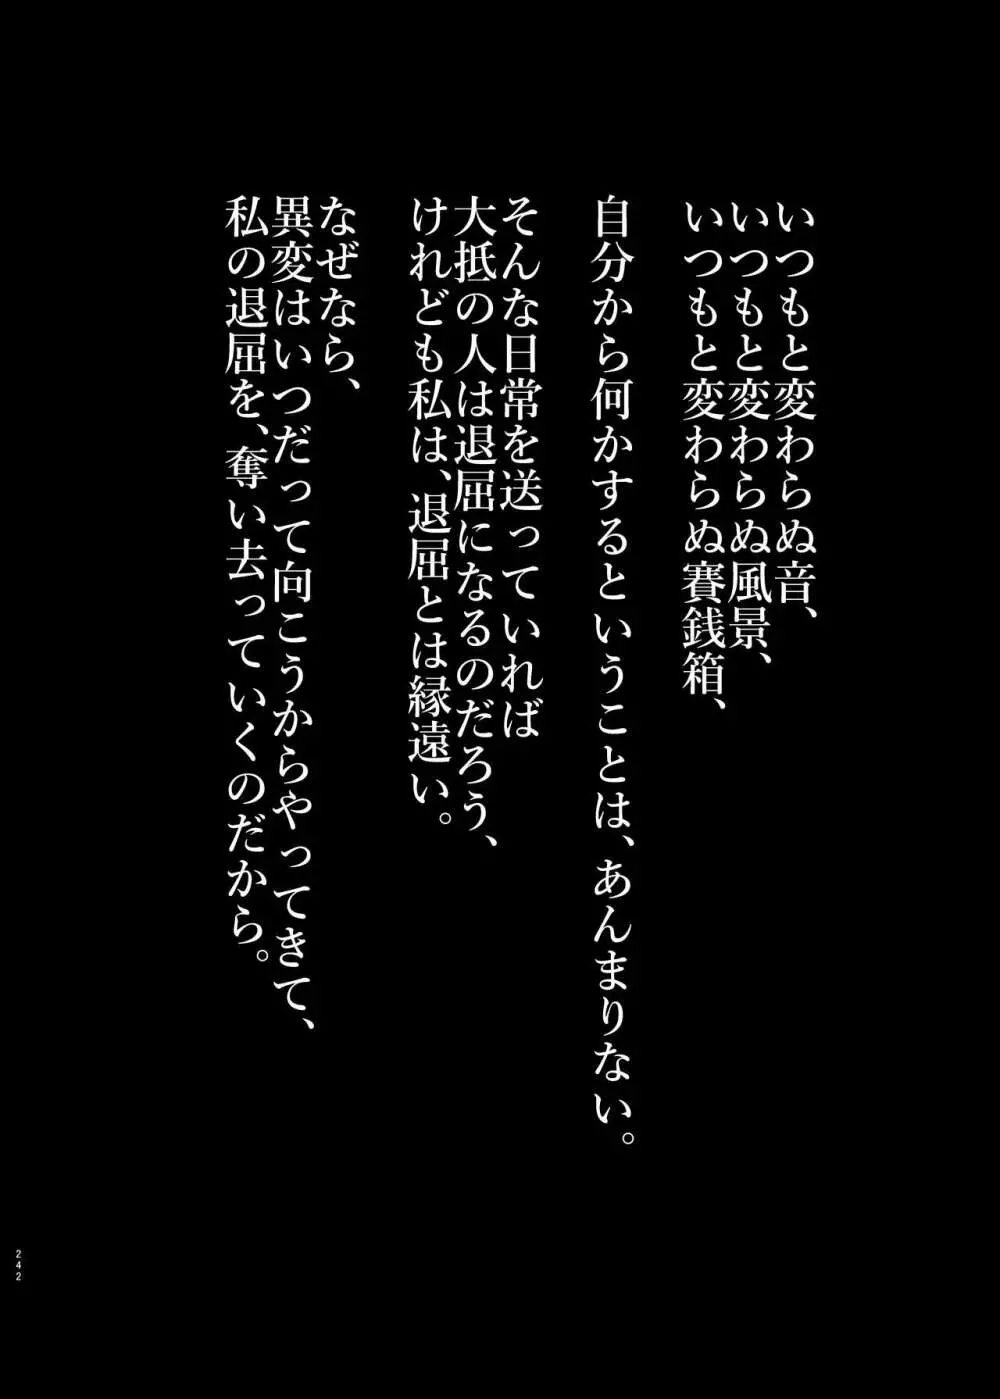 いつもと変わらぬ音、
いつもと変わらぬ風景、
いつもと変わらぬ賽銭箱、
自分から何かするということは、あんまりない。
そんな日常を送っていれば
大抵の人は退屈になるのだろう、
けれども私は、退屈とは縁遠い。
なぜなら、
異変はいつだって向こうからやってきて、
私の退屈を、奪い去っていくのだから。
242